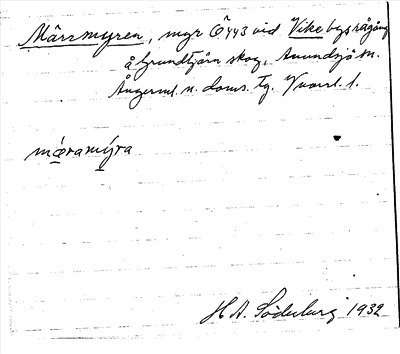 Märrmyren, myr Ö 443 vid Vike bys rågång
å Grundtjärn skog, Anundsjö sn.
Ångerml. n. doms. tg.
mœramýra
H A. Söderberg 1932